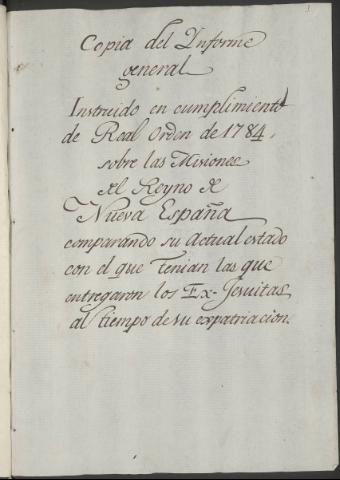 1
Copia del Informe
general
Instruido en cumplimiento
de Real Orden de 1784,
sobre las Misiones
del Reyno de
Nueva España
comparando su actual estado
con el que tenian las que
entregaron los Ex-Jesuitas
al tiempo de su expatriacion.